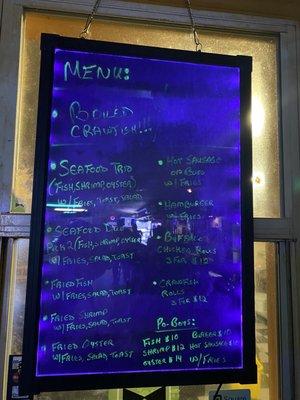 MENU:
BOILED
CRAWFISH!!!
SEAFOOD TRIO
(FISH, SHRIMP, OYSTER)
W/FRIES, TOAST, SALAD
SEAFOOD DUO
PICK 2 (FISH, SHRIMP, OYSTER
W/ FRIES, SALAD, TOAST
FRIED FISH
W/ FRIES, SALAD, TOAST
FRIED SHRIMP
W/FRIES, SALAD, TOAST
FRIED OYSTER
W/FRIES, SALAD, TOAST
HOT SAUSAGE
W/ FRIES
HAMBURGER
W/ FRIES
BUFFALO
CHICKEN ROLLS
3 FOR $10
CRAWFISH
ROLLS
3 FOR $12
PO-BOYS:
FISH $10 BURGER $10
SHRIMP $12 HOT SAUSAGE $10
OYSTER $14 W/ FRIES